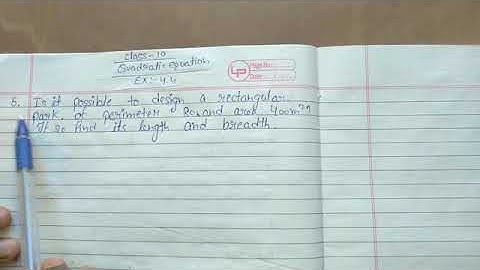 Class - 10
Quadratic equation
EX:- 4.4
LP Page No.
Date
5. Is it possible to design a rectangular
park of perimeter 80m and area 400m²?
If so find its length and breadth.